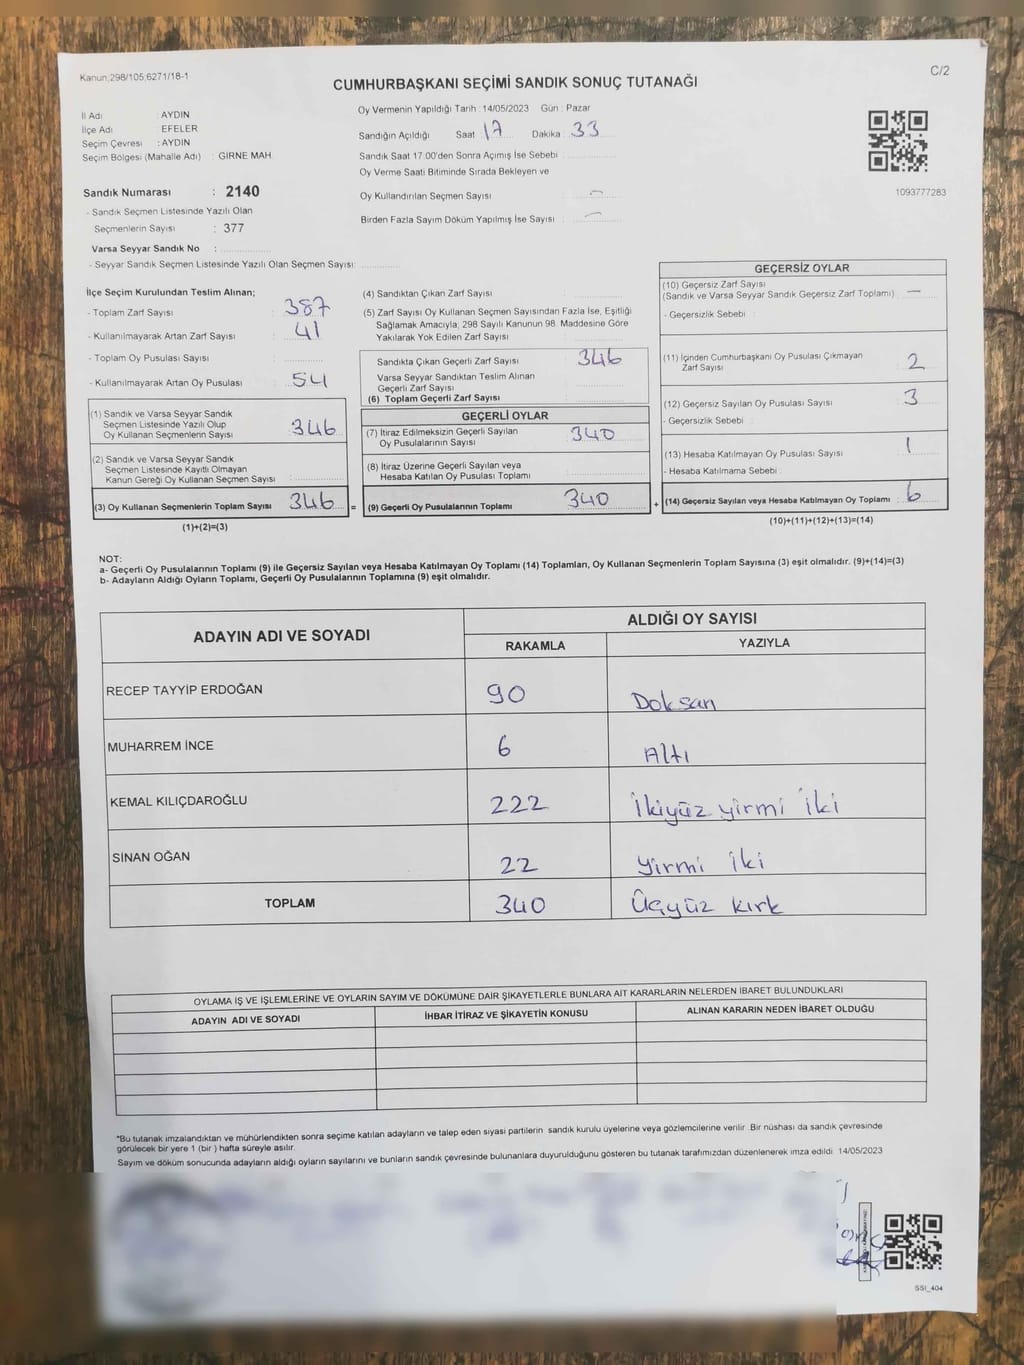 Kanun;298/105;6271/18-1
C/2
CUMHURBAŞKANI SEÇİMİ SANDIK SONUÇ TUTANAĞI
İl Adı : AYDIN
İlçe Adı : EFELER
Seçim Çevresi : AYDIN
Seçim Bölgesi (Mahalle Adı) : GİRNE MAH.
Oy Vermenin Yapıldığı Tarih : 14/05/2023 Gün : Pazar
Sandığın Açıldığı Saat 17 Dakika : 33
Sandık Saat 17:00'den Sonra Açımış İse Sebebi :
Oy Verme Saati Bitiminde Sırada Bekleyen ve
Oy Kullandırılan Seçmen Sayısı : -
Birden Fazla Sayım Döküm Yapılmış İse Sayısı : -
1093777283
Sandık Numarası : 2140
- Sandık Seçmen Listesinde Yazılı Olan
Seçmenlerin Sayısı : 377
Varsa Seyyar Sandık No :
- Seyyar Sandık Seçmen Listesinde Yazılı Olan Seçmen Sayısı:
İlçe Seçim Kurulundan Teslim Alınan;
- Toplam Zarf Sayısı : 387
- Kullanılmayarak Artan Zarf Sayısı : 41
- Toplam Oy Pusulası Sayısı :
- Kullanılmayarak Artan Oy Pusulası : 54
(1) Sandık ve Varsa Seyyar Sandık
Seçmen Listesinde Yazılı Olup
Oy Kullanan Seçmenlerin Sayısı : 346
(2) Sandık ve Varsa Seyyar Sandık
Seçmen Listesinde Kayıtlı Olmayan
Kanun Gereği Oy Kullanan Seçmen Sayısı :
(3) Oy Kullanan Seçmenlerin Toplam Sayısı : 346
(1)+(2)=(3)
(4) Sandıktan Çıkan Zarf Sayısı :
(5) Zarf Sayısı Oy Kullanan Seçmen Sayısından Fazla İse, Eşitliği
Sağlamak Amacıyla; 298 Sayılı Kanunun 98. Maddesine Göre
Yakılarak Yok Edilen Zarf Sayısı :
Sandıkta Çıkan Geçerli Zarf Sayısı : 346
Varsa Seyyar Sandıktan Teslim Alınan
Geçerli Zarf Sayısı :
(6) Toplam Geçerli Zarf Sayısı :
GEÇERLİ OYLAR
(7) İtiraz Edilmeksizin Geçerli Sayılan
Oy Pusulalarının Sayısı : 340
(8) İtiraz Üzerine Geçerli Sayılan veya
Hesaba Katılan Oy Pusulası Toplamı :
= (9) Geçerli Oy Pusulalarının Toplamı : 340 +
GEÇERSİZ OYLAR
(10) Geçersiz Zarf Sayısı
(Sandık ve Varsa Seyyar Sandık Geçersiz Zarf Toplamı) : -
- Geçersizlik Sebebi :
(11) İçinden Cumhurbaşkanı Oy Pusulası Çıkmayan
Zarf Sayısı : 2
(12) Geçersiz Sayılan Oy Pusulası Sayısı : 3
- Geçersizlik Sebebi :
(13) Hesaba Katılmayan Oy Pusulası Sayısı : 1
- Hesaba Katılmama Sebebi :
(14) Geçersiz Sayılan veya Hesaba Katılmayan Oy Toplamı : 6
(10)+(11)+(12)+(13)=(14)
NOT:
a- Geçerli Oy Pusulalarının Toplamı (9) ile Geçersiz Sayılan veya Hesaba Katılmayan Oy Toplamı (14) Toplamları, Oy Kullanan Seçmenlerin Toplam Sayısına (3) eşit olmalıdır. (9)+(14)=(3)
b- Adayların Aldığı Oyların Toplamı, Geçerli Oy Pusulalarının Toplamına (9) eşit olmalıdır.
ADAYIN ADI VE SOYADI
ALDIĞI OY SAYISI
RAKAMLA YAZIYLA
RECEP TAYYİP ERDOĞAN 90 Doksan
MUHARREM İNCE 6 Altı
KEMAL KILIÇDAROĞLU 222 İkiyüz yirmi iki
SİNAN OĞAN 22 yirmi iki
TOPLAM 340 Üçyüz kırk
OYLAMA İŞ VE İŞLEMLERİNE VE OYLARIN SAYIM VE DÖKÜMÜNE DAİR ŞİKAYETLERLE BUNLARA AİT KARARLARIN NELERDEN İBARET BULUNDUKLARI
ADAYIN ADI VE SOYADI İHBAR İTİRAZ VE ŞİKAYETİN KONUSU ALINAN KARARIN NEDEN İBARET OLDUĞU
*Bu tutanak imzalandıktan ve mühürlendikten sonra seçime katılan adayların ve talep eden siyasi partilerin sandık kurulu üyelerine veya gözlemcilerine verilir. Bir nüshası da sandık çevresinde
görülecek bir yere 1 (bir) hafta süreyle asılır.
Sayım ve döküm sonucunda adayların aldığı oyların sayılarını ve bunların sandık çevresinde bulunanlara duyurulduğunu gösteren bu tutanak tarafımızdan düzenlenerek imza edildi. 14/05/2023
SSI_404